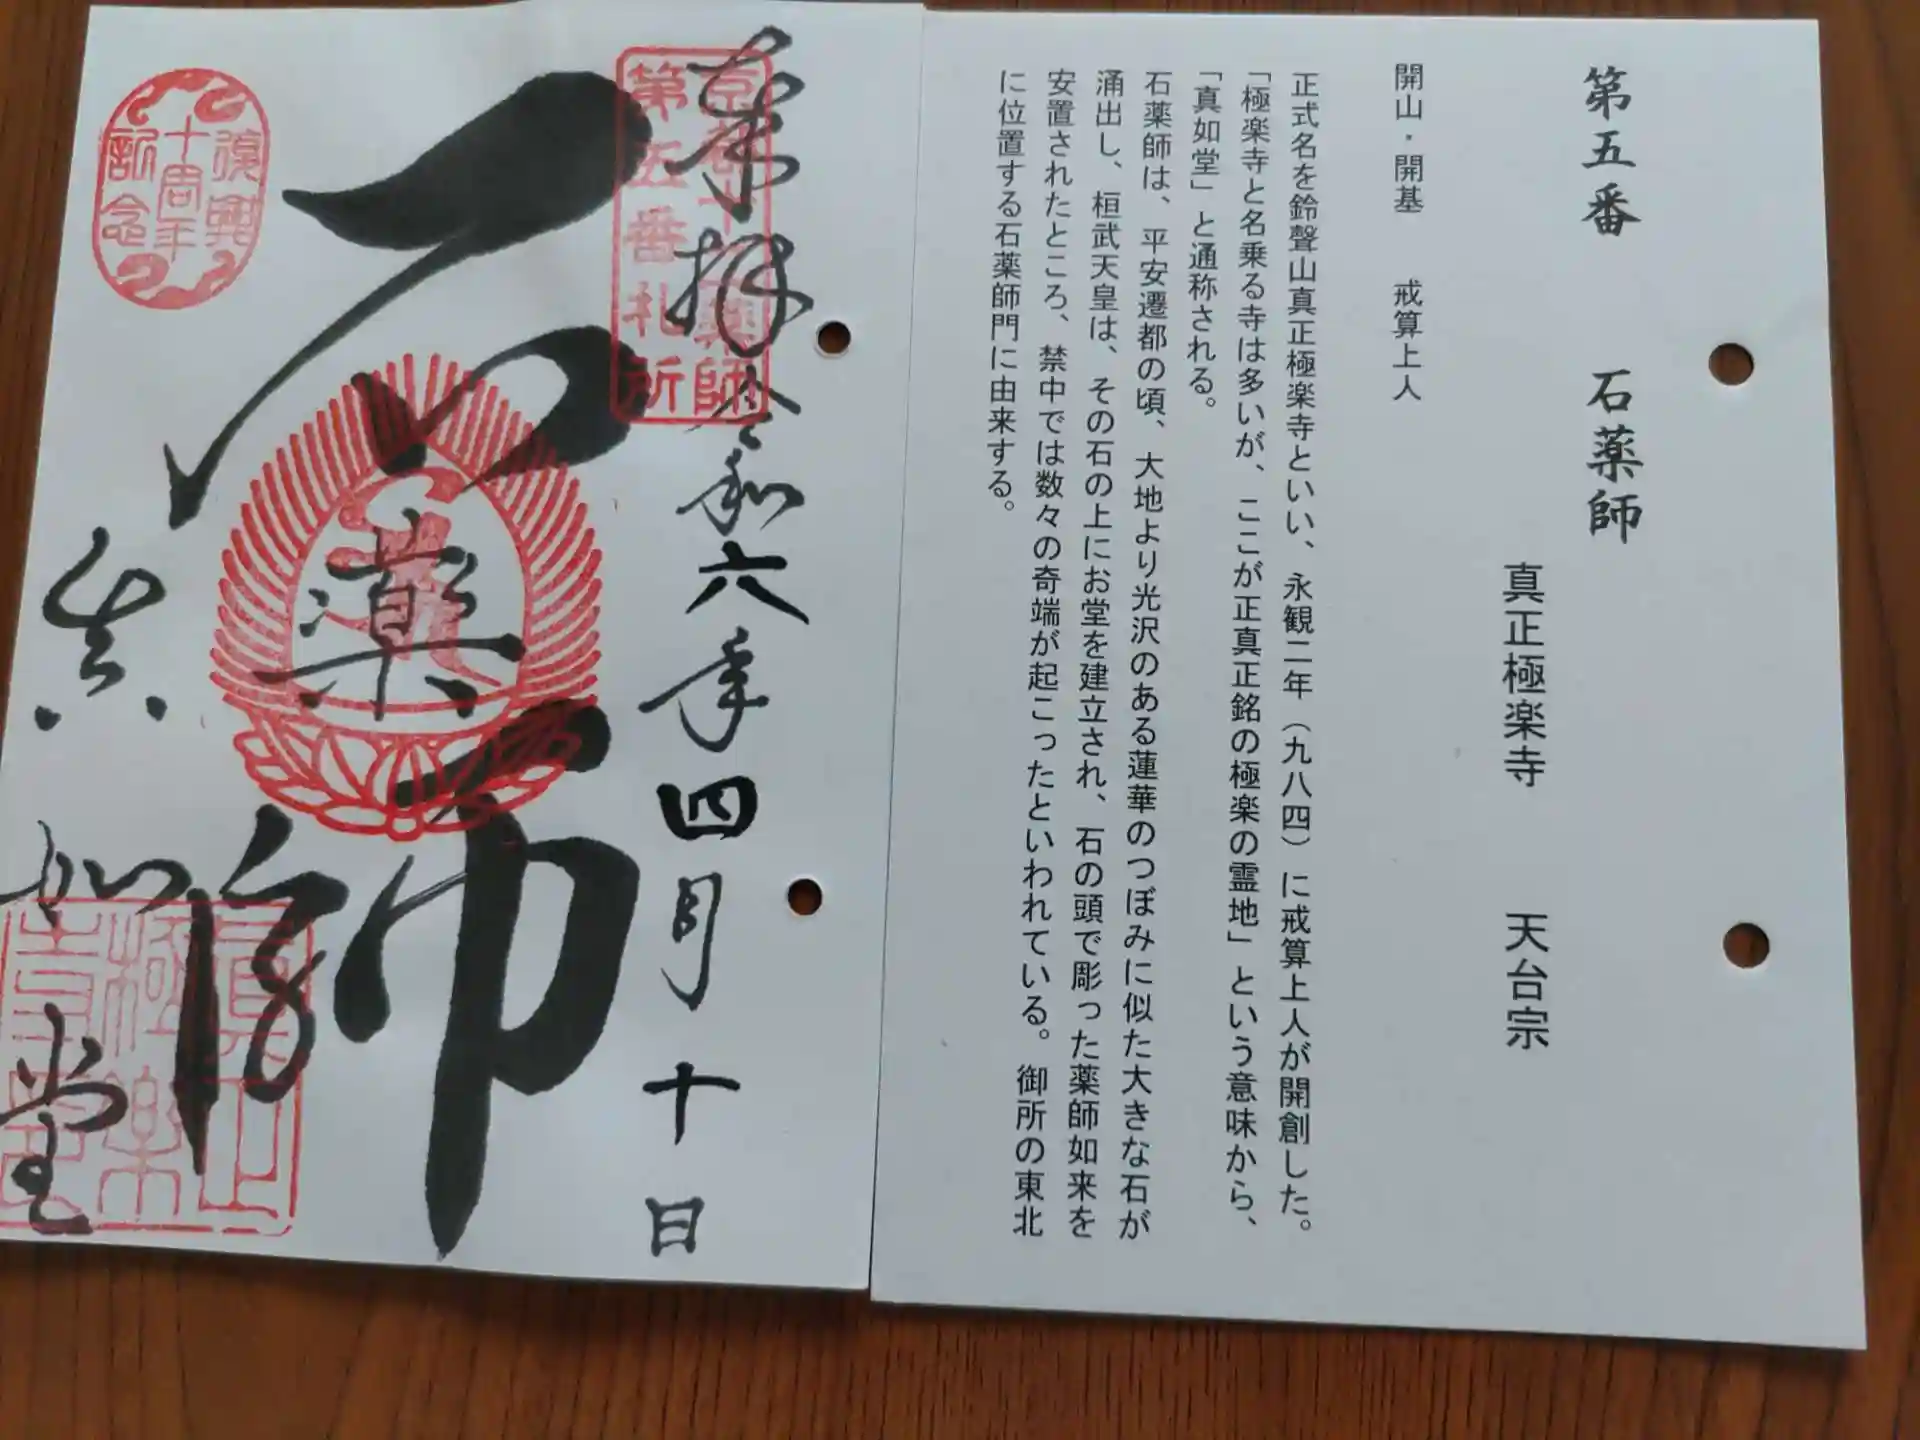 第五番 石薬師
真正極楽寺 天台宗
開山・開基 戒算上人
正式名を鈴聲山真正極楽寺といい、永観二年（九八四）に戒算上人が開創した。
「極楽寺と名乗る寺は多いが、ここが正真正銘の極楽の霊地」という意味から、
「真如堂」と通称される。
石薬師は、平安遷都の頃、大地より光沢のある蓮華のつぼみに似た大きな石が
涌出し、桓武天皇は、その石の上にお堂を建立され、石の頭で彫った薬師如来を
安置されたところ、禁中では数々の奇端が起こったといわれている。御所の東北
に位置する石薬師門に由来する。
奉拝 令和六年四月十日
京都十二薬師
第五番札所
石薬師
真如堂
復興
十周年
記念
真正
極楽
寺印